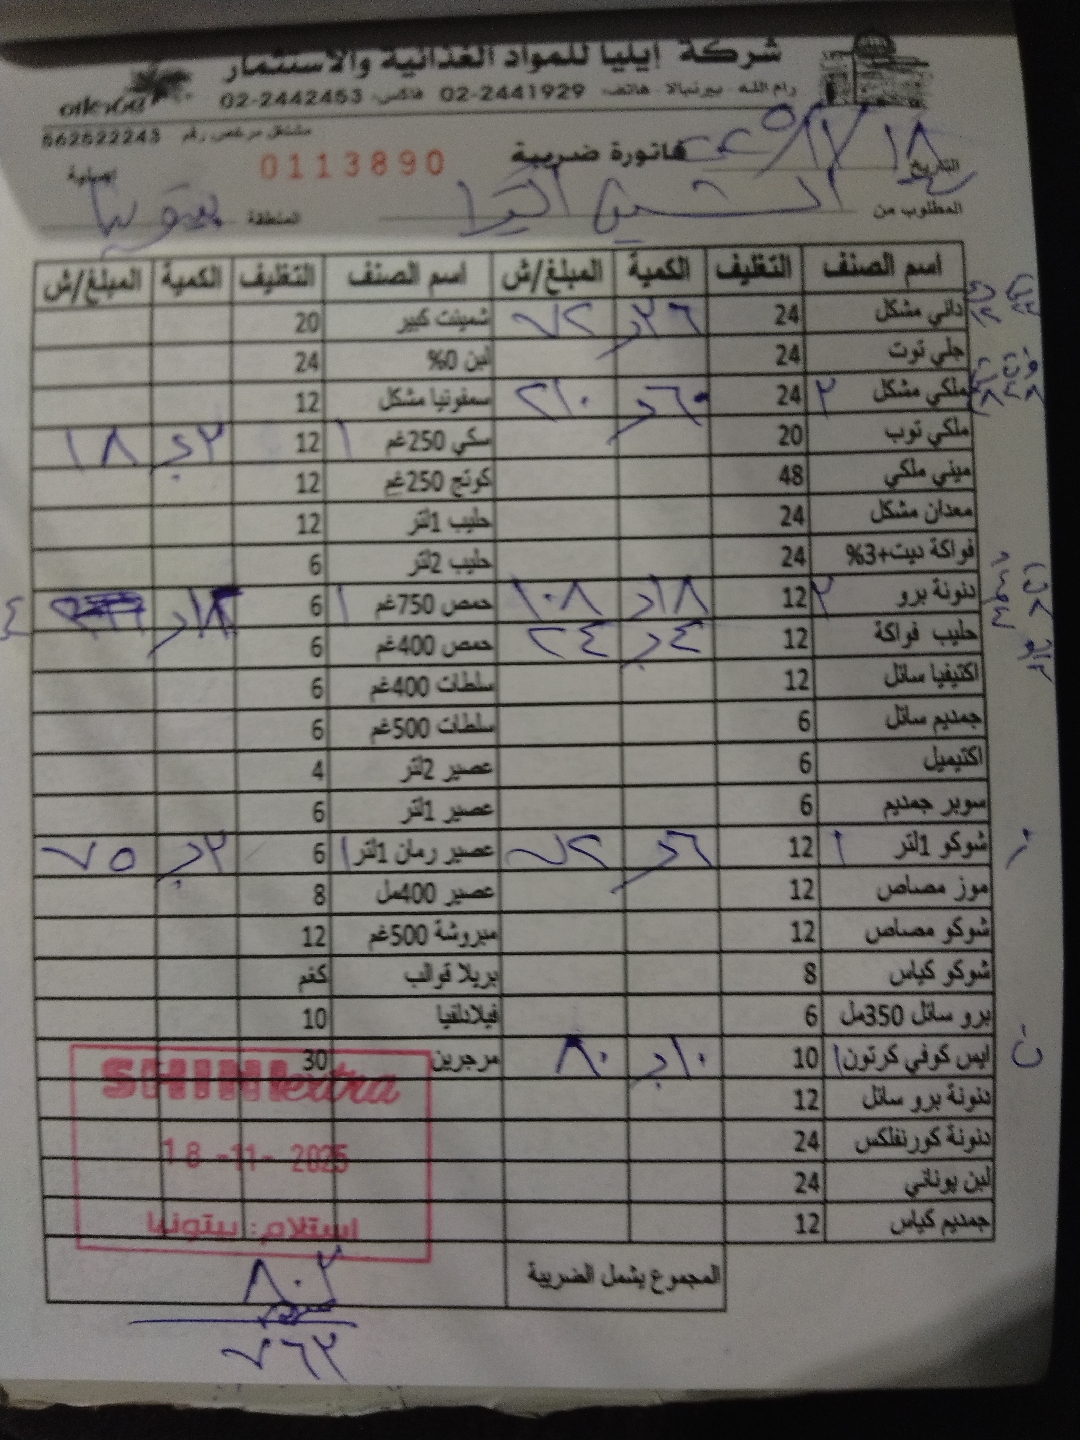 شركة إيليا للمواد الغذائية والاستثمار
رام الله - بيرنبالا هاتف: 02-2441929 فاكس: 02-2442453
مشتغل مرخص رقم 562522243
التاريخ ١٨/١١/٢٠٢٥ فاتورة ضريبية 0113890
المطلوب من المنطقة بيتونيا
اسم الصنف التغليف الكمية المبلغ/ش اسم الصنف التغليف الكمية المبلغ/ش
داني مشكل 24 ٣٦ ٧٢ شمينت كبير 20
جلي توت 24 لبن 0% 24
ملكي مشكل ٢ 24 ٦٠ ٢١٠ سمفونيا مشكل 12
ملكي توب 20 سكي 250غم ١ 12 ٣ ١٨
ميني ملكي 48 كوتج 250غم 12
معدان مشكل 24 حليب 1لتر 12
فواكة ديت+3% 24 حليب 2لتر 6
دنونة برو ٢ 12 ١٨ ١٠٨ حمص 750غم ١ 6
حليب فواكة 12 ٤ ٢٤ حمص 400غم 6
اكتيفيا سائل 12 سلطات 400غم 6
جمديم سائل 6 سلطات 500غم 6
اكتيميل 6 عصير 2لتر 4
سوبر جمديم 6 عصير 1لتر 6
شوكو 1لتر ١ 12 ٦ ٧٢ عصير رمان 1لتر ١ 6 ٣ ٧٥
موز مصاص 12 عصير 400مل 8
شوكو مصاص 12 مبروشة 500غم 12
شوكو كياس 8 بريلا قوالب كغم
برو سائل 350مل 6 فيلادلفيا 10
ايس كوفي كرتون ١ 10 ١٠ ٨٠ مرجرين 30
دنونة برو سائل 12
دنونة كورنفلكس 24
لبن يوناني 24
جمديم كياس 12
SHINI extra
18 -11- 2025
استلام: بيتونيا
المجموع يشمل الضريبة ٨٠٢
٧٦٢